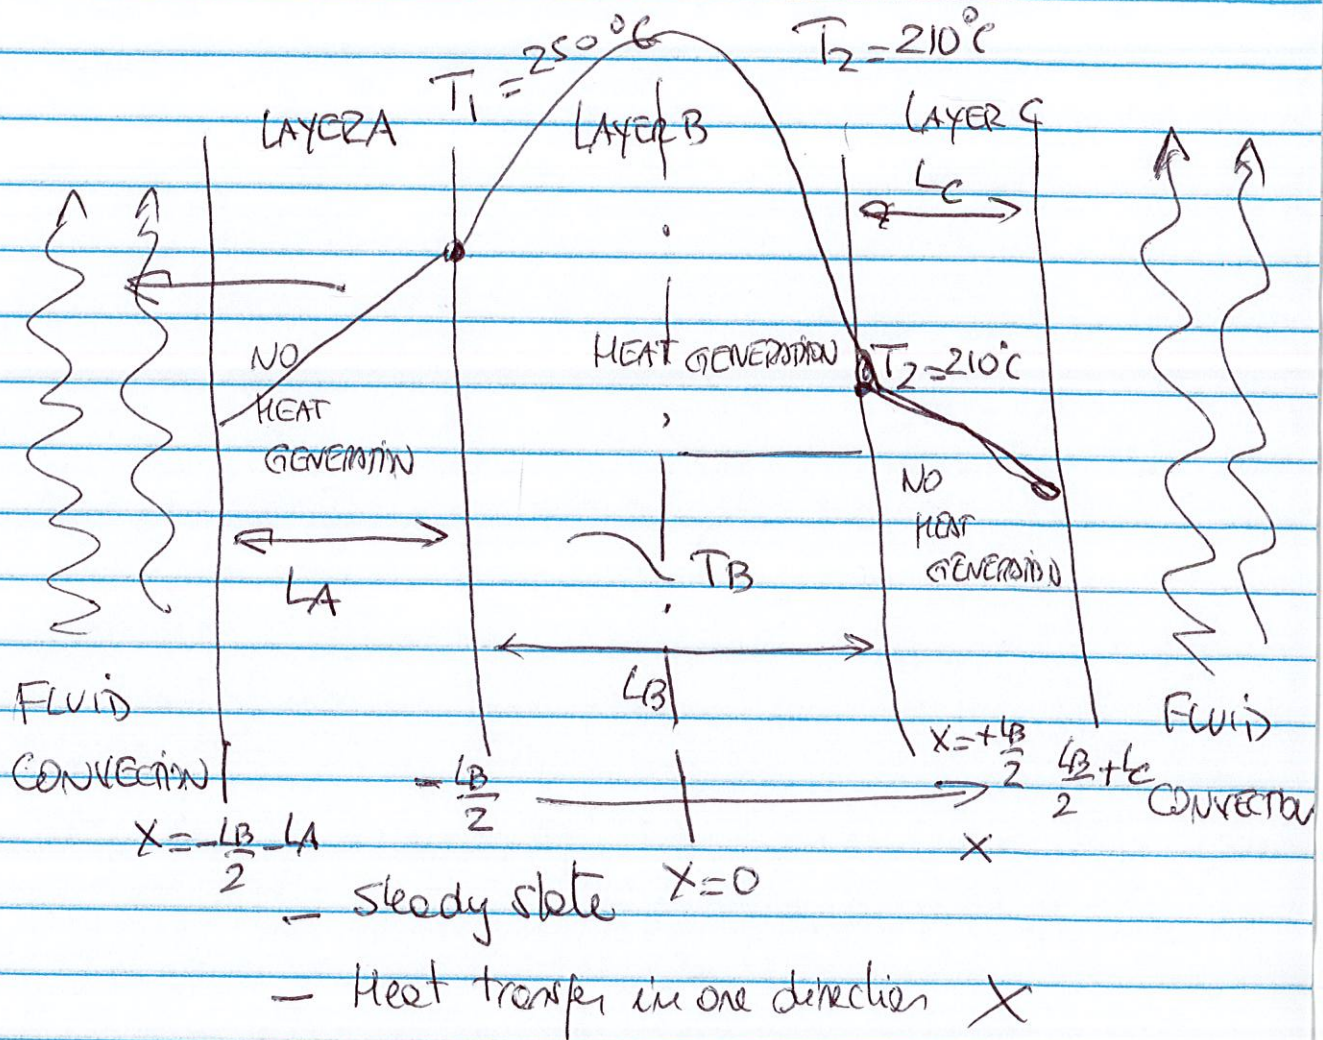 T1 = 250°C
T2 = 210°C
LAYER A
LAYER B
LAYER C
LC
NO
HEAT
GENERATION
HEAT GENERATION
T2 = 210°C
NO
HEAT
GENERATION
LA
TB
LB
FLUID
CONVECTION
FLUID
CONVECTION
X = -LB/2 - LA
-LB/2
X = +LB/2
LB/2 + LC
X
X = 0
- Steady state
- Heat transfer in one direction X